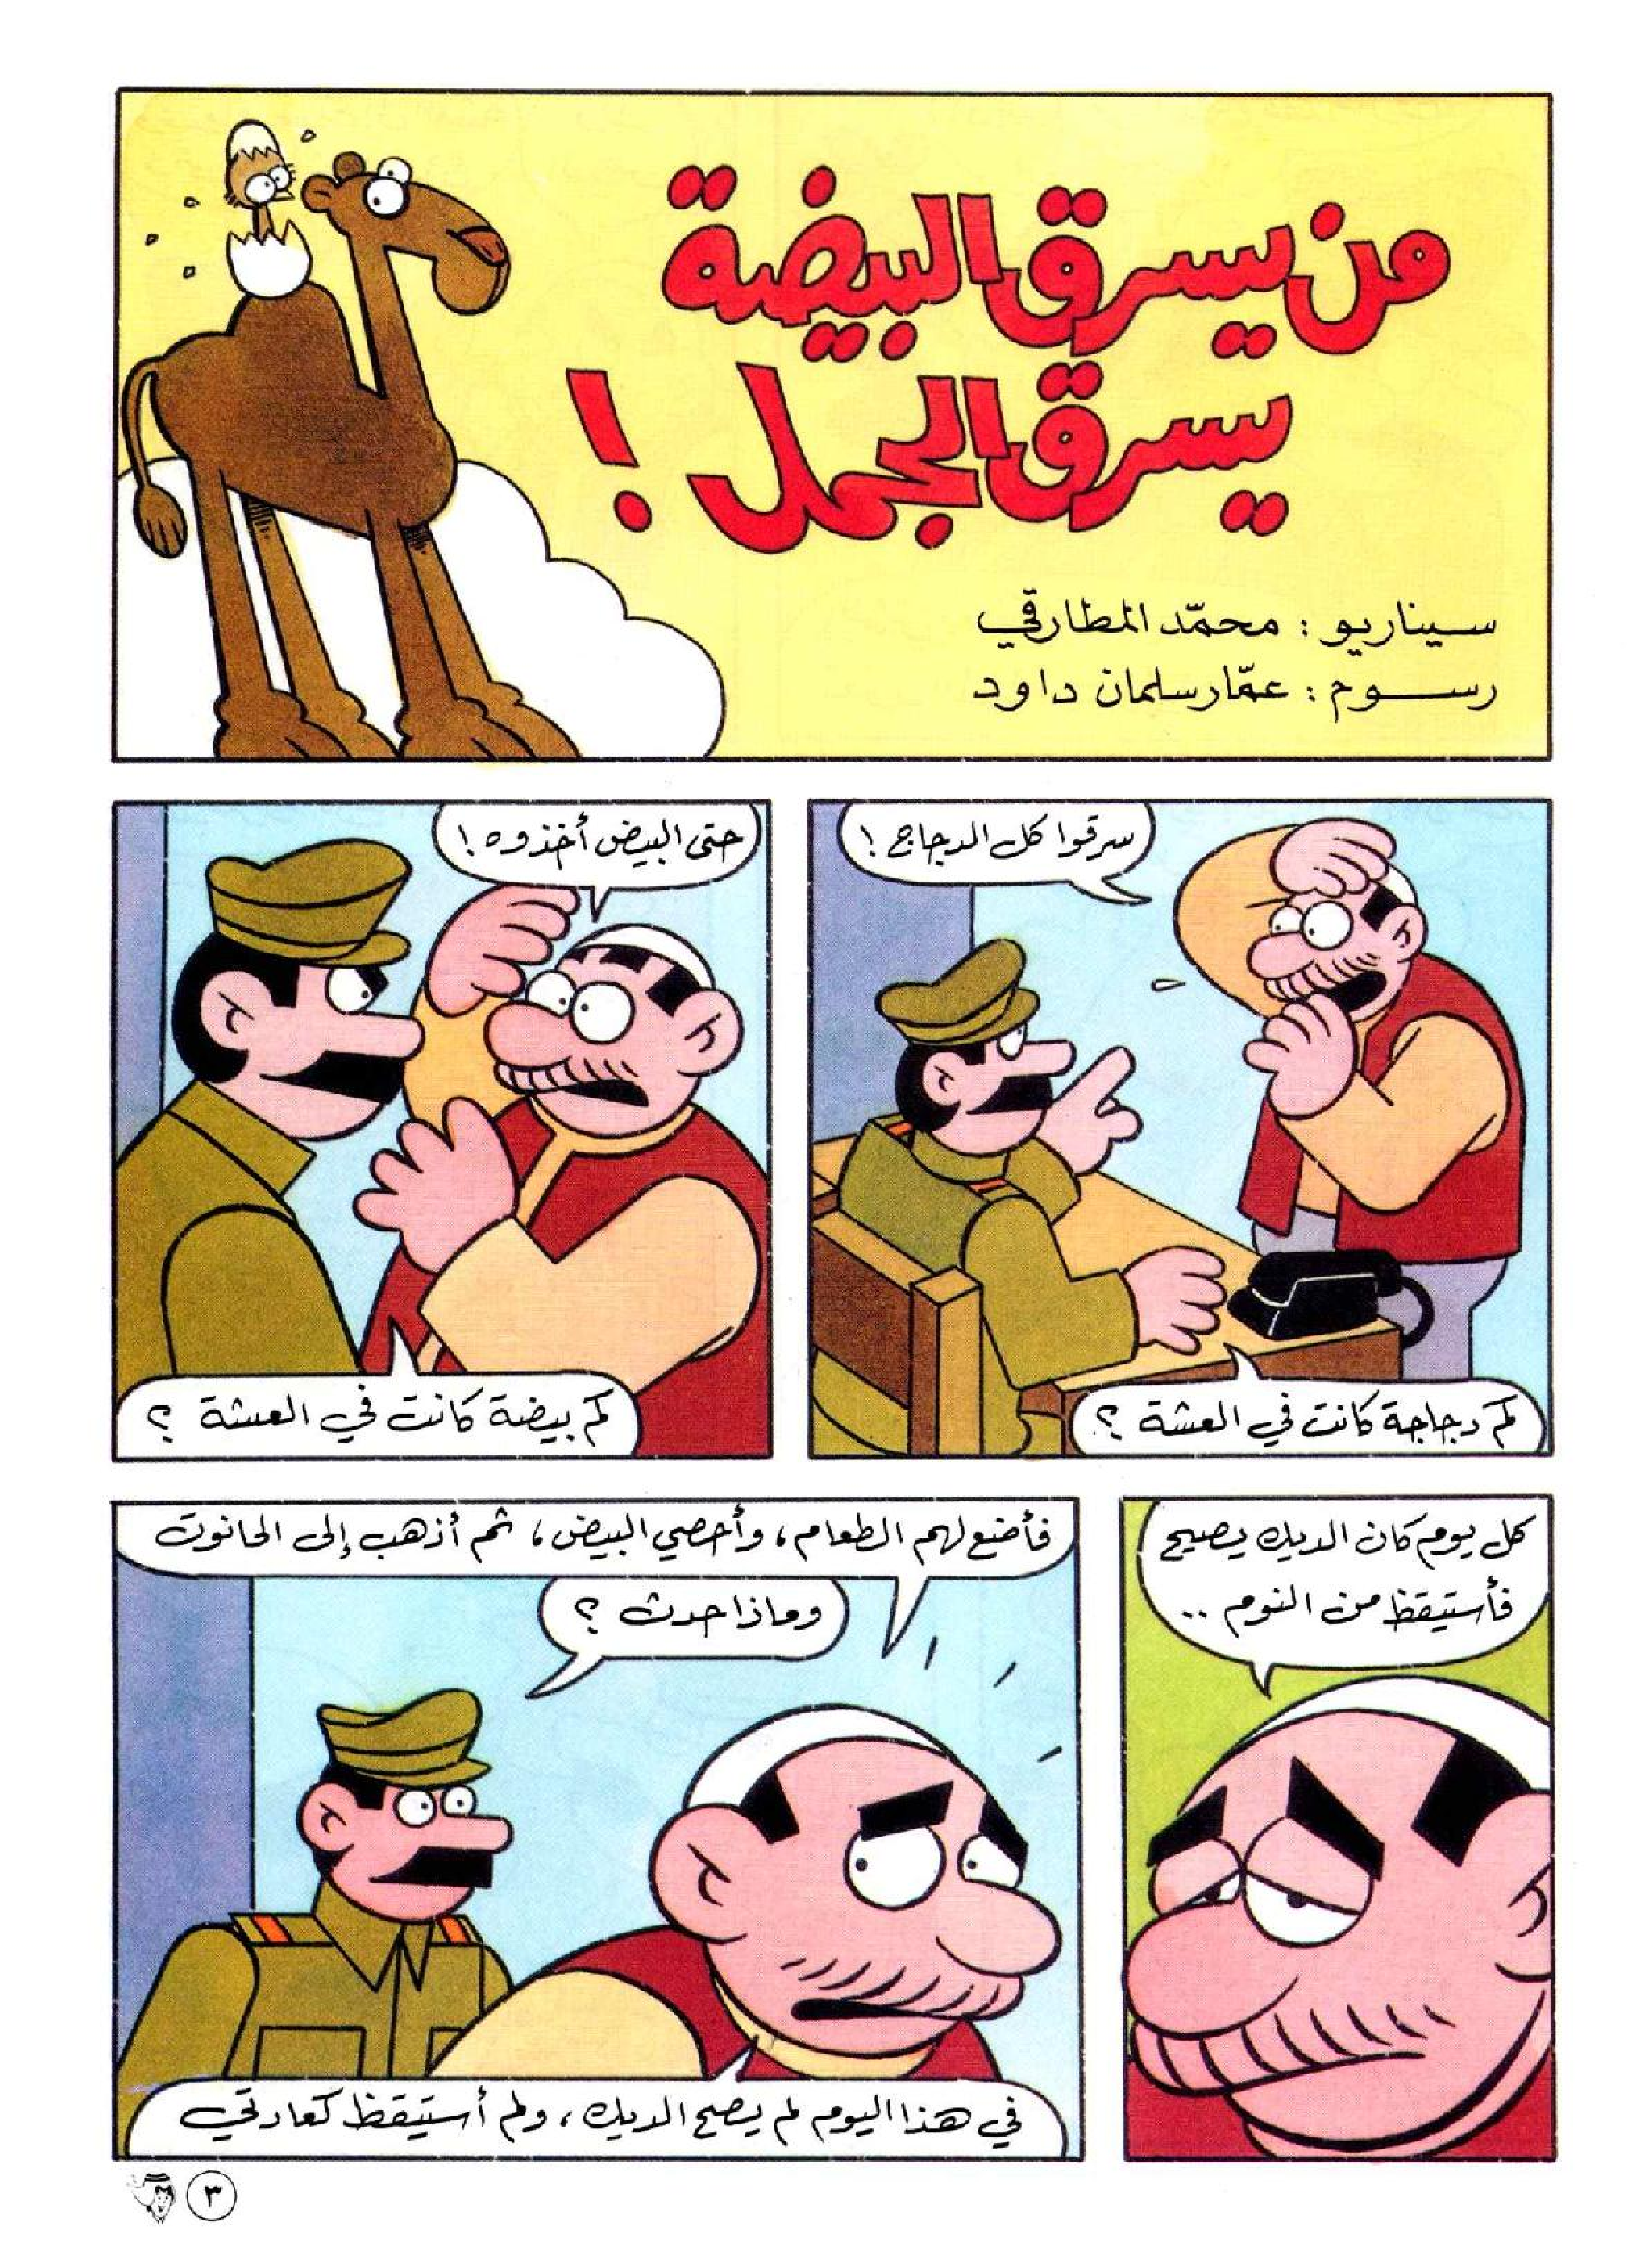 من يسرق البيضة
يسرق الجمل !
سيناريو : محمّد المطارقي
رسوم : عمّار سلمان داود
سرقوا كل الدجاج !
كم دجاجة كانت في العشة ؟
حتى البيض أخذوه !
كم بيضة كانت في العشة ؟
كل يوم كان الديك يصيح
فأستيقظ من النوم ..
فأضع لهم الطعام ، وأحصي البيض ، ثم أذهب إلى الحانوت
وماذا حدث ؟
في هذا اليوم لم يصح الديك ، ولم أستيقظ كعادتي
٣